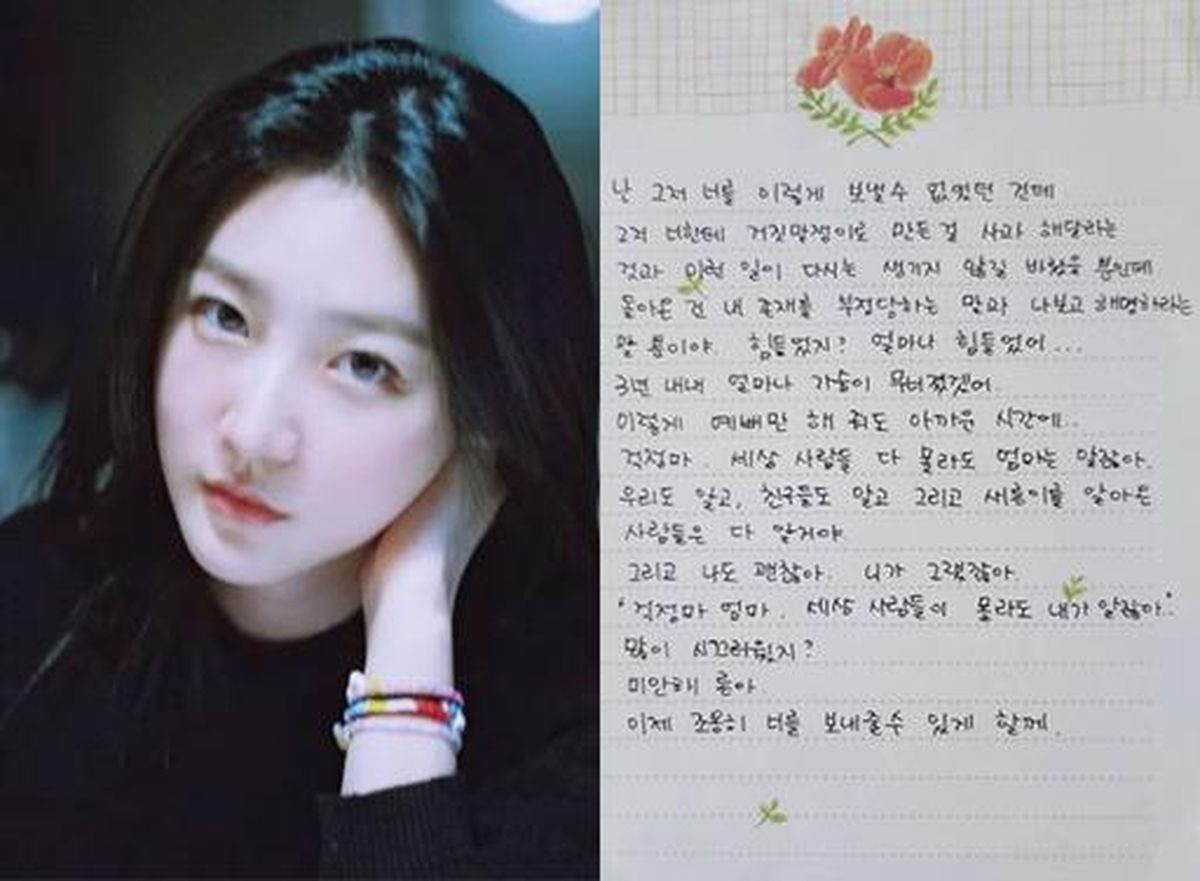 난 그저 너를 이렇게 보낼수 없었던 건데
그저 너한테 거짓말쟁이로 만든걸 사과 해달라는
것과 이런 일이 다시는 생기지 않길 바랬을 뿐인데
돌아온 건 내 존재를 부정당하는 말과 나보고 해명하라는
말 뿐이야. 힘들었지? 얼마나 힘들었어...
3년 내내 얼마나 가슴이 무너졌겠어.
이렇게 예뻐만 해 줘도 아까운 시간에..
걱정마. 세상 사람들 다 몰라도 엄마는 알잖아.
우리도 알고, 친구들도 알고 그리고 새론이를 알아든
사람들은 다 알거야
그리고 나도 괜찮아. 니가 그랬잖아.
"걱정마 엄마. 세상 사람들이 몰라도 내가 알잖아."
많이 시끄러웠지?
미안해 론아
이제 조용히 너를 보내줄수 있게 할께.